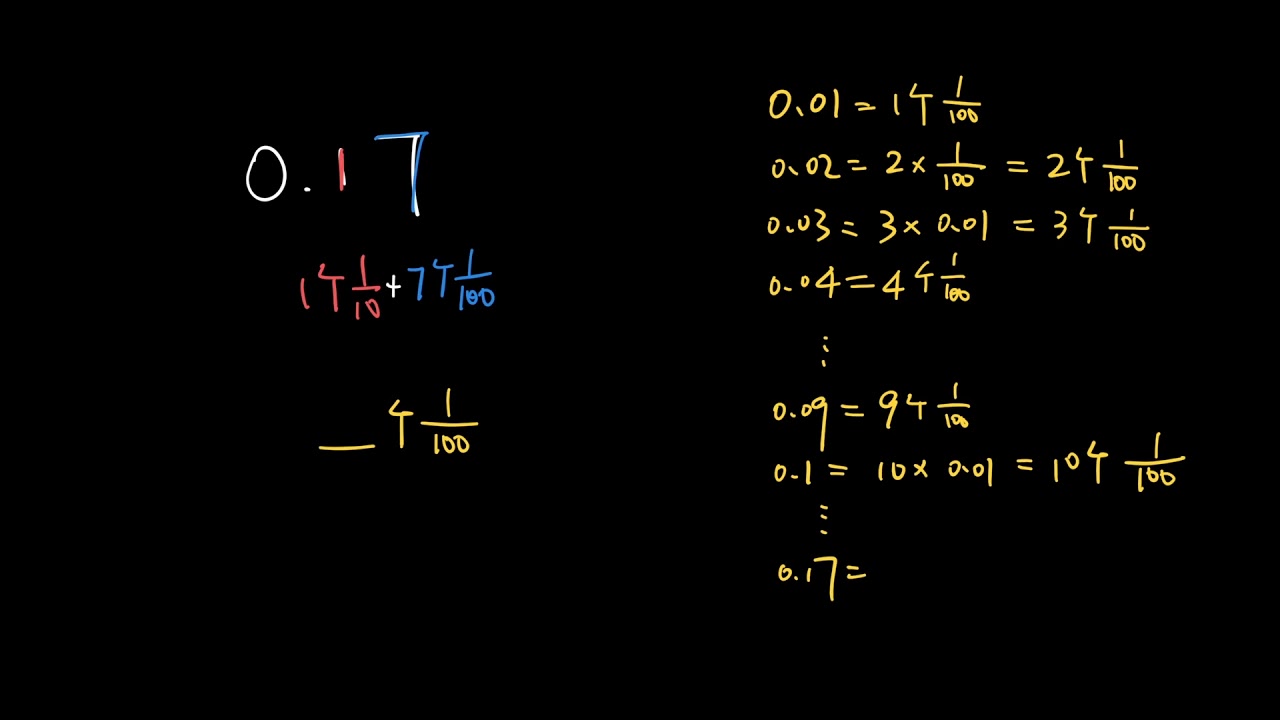 0.17
1ケ1/10+7ケ1/100
__ケ1/100
0.01=1ケ1/100
0.02=2×1/100=2ケ1/100
0.03=3×0.01=3ケ1/100
0.04=4ケ1/100
⋮
0.09=9ケ1/100
0.1=10×0.01=10ケ1/100
⋮
0.17=